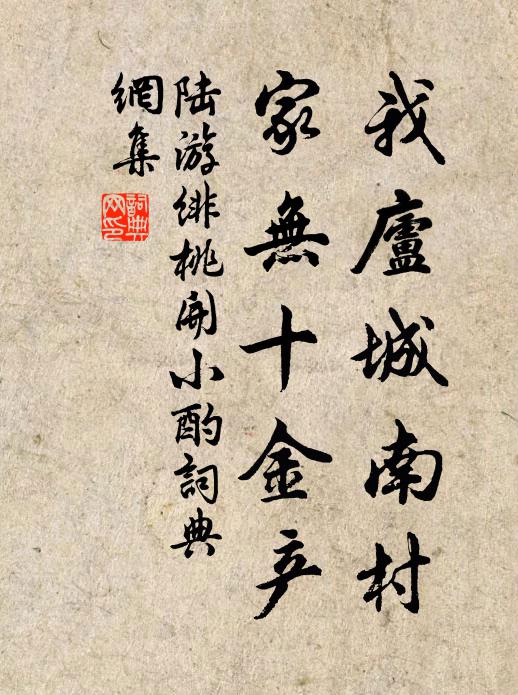 我廬城南村
家無十金产
陆游绯桃開小酌詞典
網集
詞典
网印